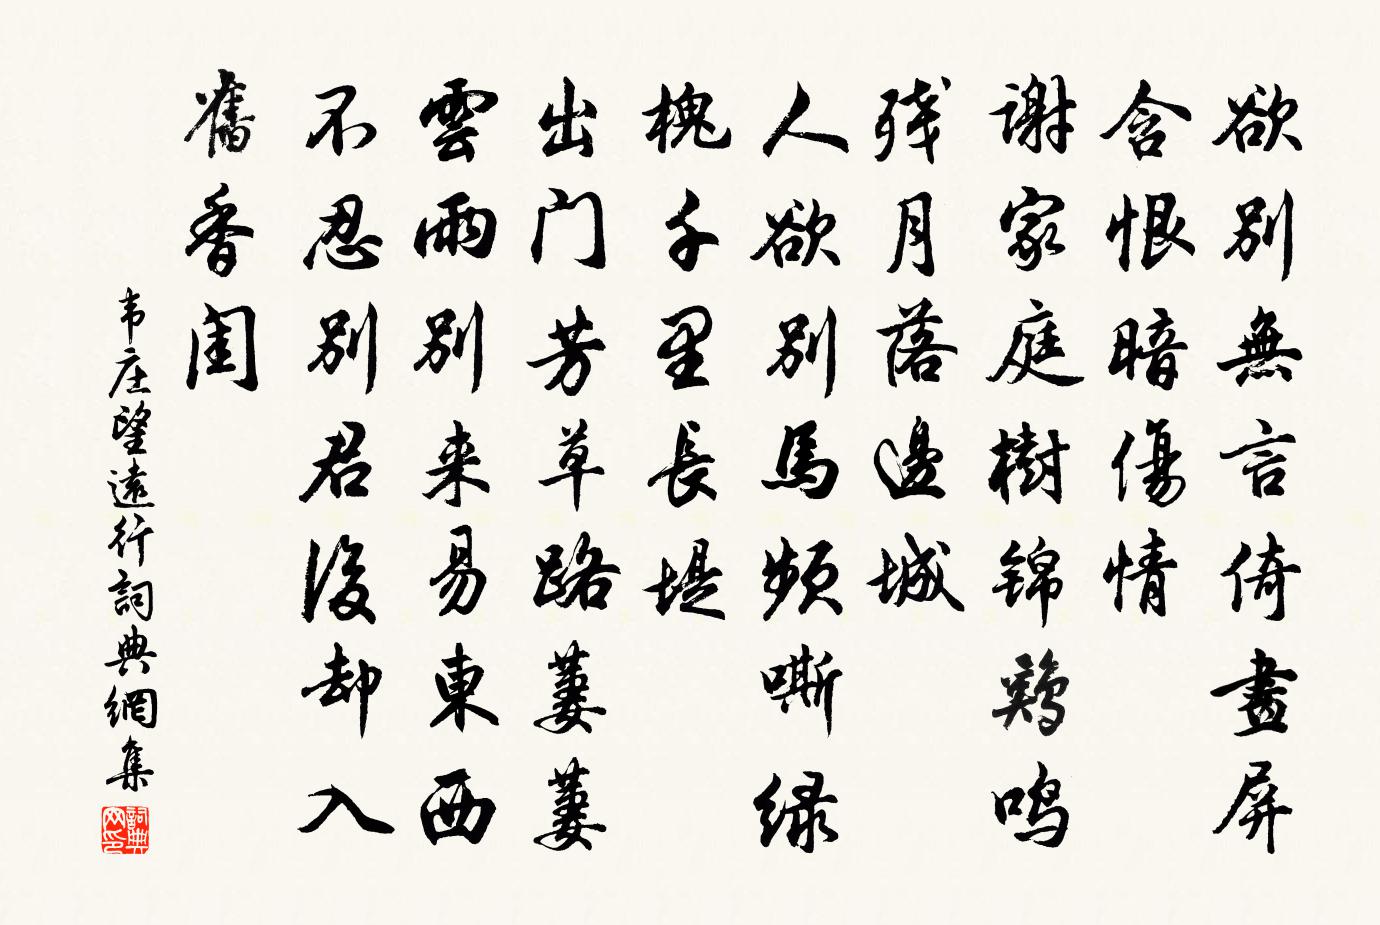 欲别無言倚畫屏
含恨暗傷情
謝家庭樹錦鷄鳴
残月落邊城
人欲别馬頻嘶绿
槐千里長堤
出门芳草路萋萋
雲雨别来易東西
不忍别君後却入
舊香闺
韦庄望遠行詞典網集
詞典网印